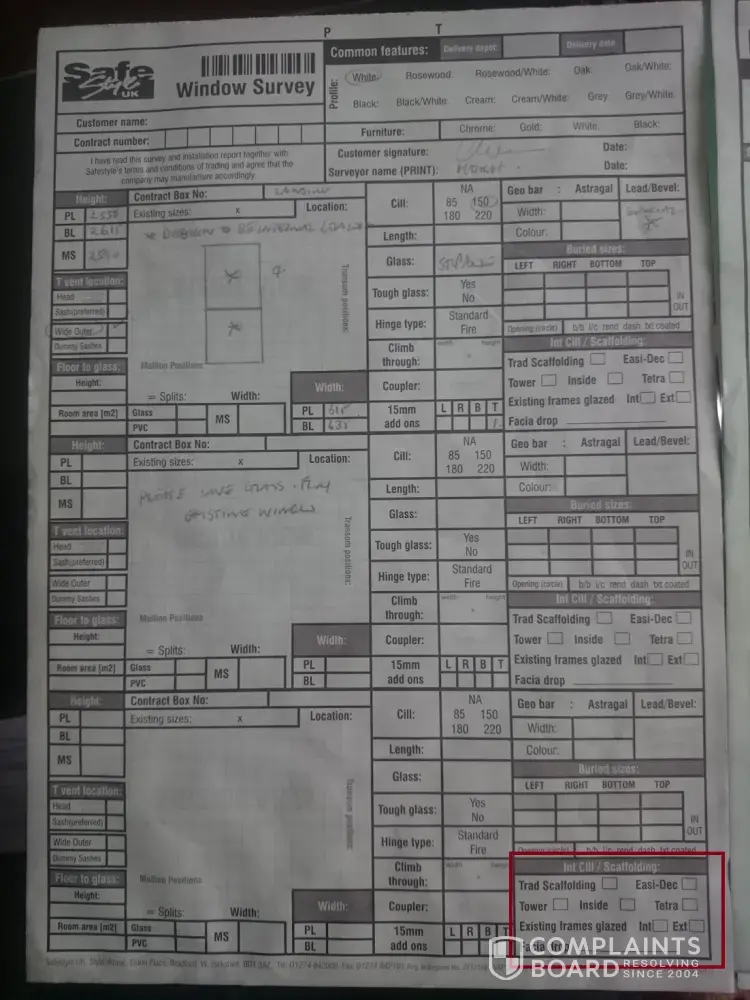 P T
Safe Style UK
Window Survey
Customer name:
Contract number:
I have read this survey and installation report together with
Safestyle's terms and conditions of trading and agree that the
company may manufacture accordingly.
Common features: Delivery depot: Delivery date
Profile: White: Rosewood: Rosewood/White: Oak: Oak/White:
Black: Black/White: Cream: Cream/White: Grey Grey/White:
Furniture: Chrome: Gold: White: Black:
Customer signature: Date:
Surveyor name (PRINT): Date:
Height:
PL
BL
MS
T vent location:
Head
Sash(preferred)
Wide Outer
Dummy Sashes
Floor to glass:
Height:
Room area [m2]
Contract Box No:
Existing sizes: x Location:
Transom positions:
Mullion Positions
= Splits: Width:
Glass
PVC
MS
Width:
PL
BL
Cill: NA
85 150
180 220
Length:
Glass:
Tough glass: Yes
No
Hinge type: Standard
Fire
Climb through: width height
x
Coupler:
15mm add ons L R B T
Geo bar : Astragal Lead/Bevel:
Width:
Colour:
Buried sizes:
LEFT RIGHT BOTTOM TOP
IN
OUT
Opening (circle) b/b i/c rend dash txt coated
Int Cill / Scaffolding:
Trad Scaffolding Easi-Dec
Tower Inside Tetra
Existing frames glazed Int Ext
Facia drop
Height:
PL
BL
MS
T vent location:
Head
Sash(preferred)
Wide Outer
Dummy Sashes
Floor to glass:
Height:
Room area [m2]
Contract Box No:
Existing sizes: x Location:
PLEASE SAVE GLASS FROM
EXISTING WINDOW
Transom positions:
Mullion Positions
= Splits: Width:
Glass
PVC
MS
Width:
PL
BL
Cill: NA
85 150
180 220
Length:
Glass:
Tough glass: Yes
No
Hinge type: Standard
Fire
Climb through: width height
x
Coupler:
15mm add ons L R B T
Geo bar : Astragal Lead/Bevel:
Width:
Colour:
Buried sizes:
LEFT RIGHT BOTTOM TOP
IN
OUT
Opening (circle) b/b i/c rend dash txt coated
Int Cill / Scaffolding:
Trad Scaffolding Easi-Dec
Tower Inside Tetra
Existing frames glazed Int Ext
Facia drop
Height:
PL
BL
MS
T vent location:
Head
Sash(preferred)
Wide Outer
Dummy Sashes
Floor to glass:
Height:
Room area [m2]
Contract Box No:
Existing sizes: x Location:
Transom positions:
Mullion Positions
= Splits: Width:
Glass
PVC
MS
Width:
PL
BL
Cill: NA
85 150
180 220
Length:
Glass:
Tough glass: Yes
No
Hinge type: Standard
Fire
Climb through:
Coupler:
15mm add ons L R B T
Geo bar : Astragal Lead/Bevel:
Width:
Colour:
Buried sizes:
LEFT RIGHT BOTTOM TOP
IN
OUT
Opening (circle) b/b i/c rend dash txt coated
Int Cill / Scaffolding:
Trad Scaffolding Easi-Dec
Tower Inside Tetra
Existing frames glazed Int Ext
Facia drop
COMPLAINTS
BOARD RESOLVING
SINCE 2004